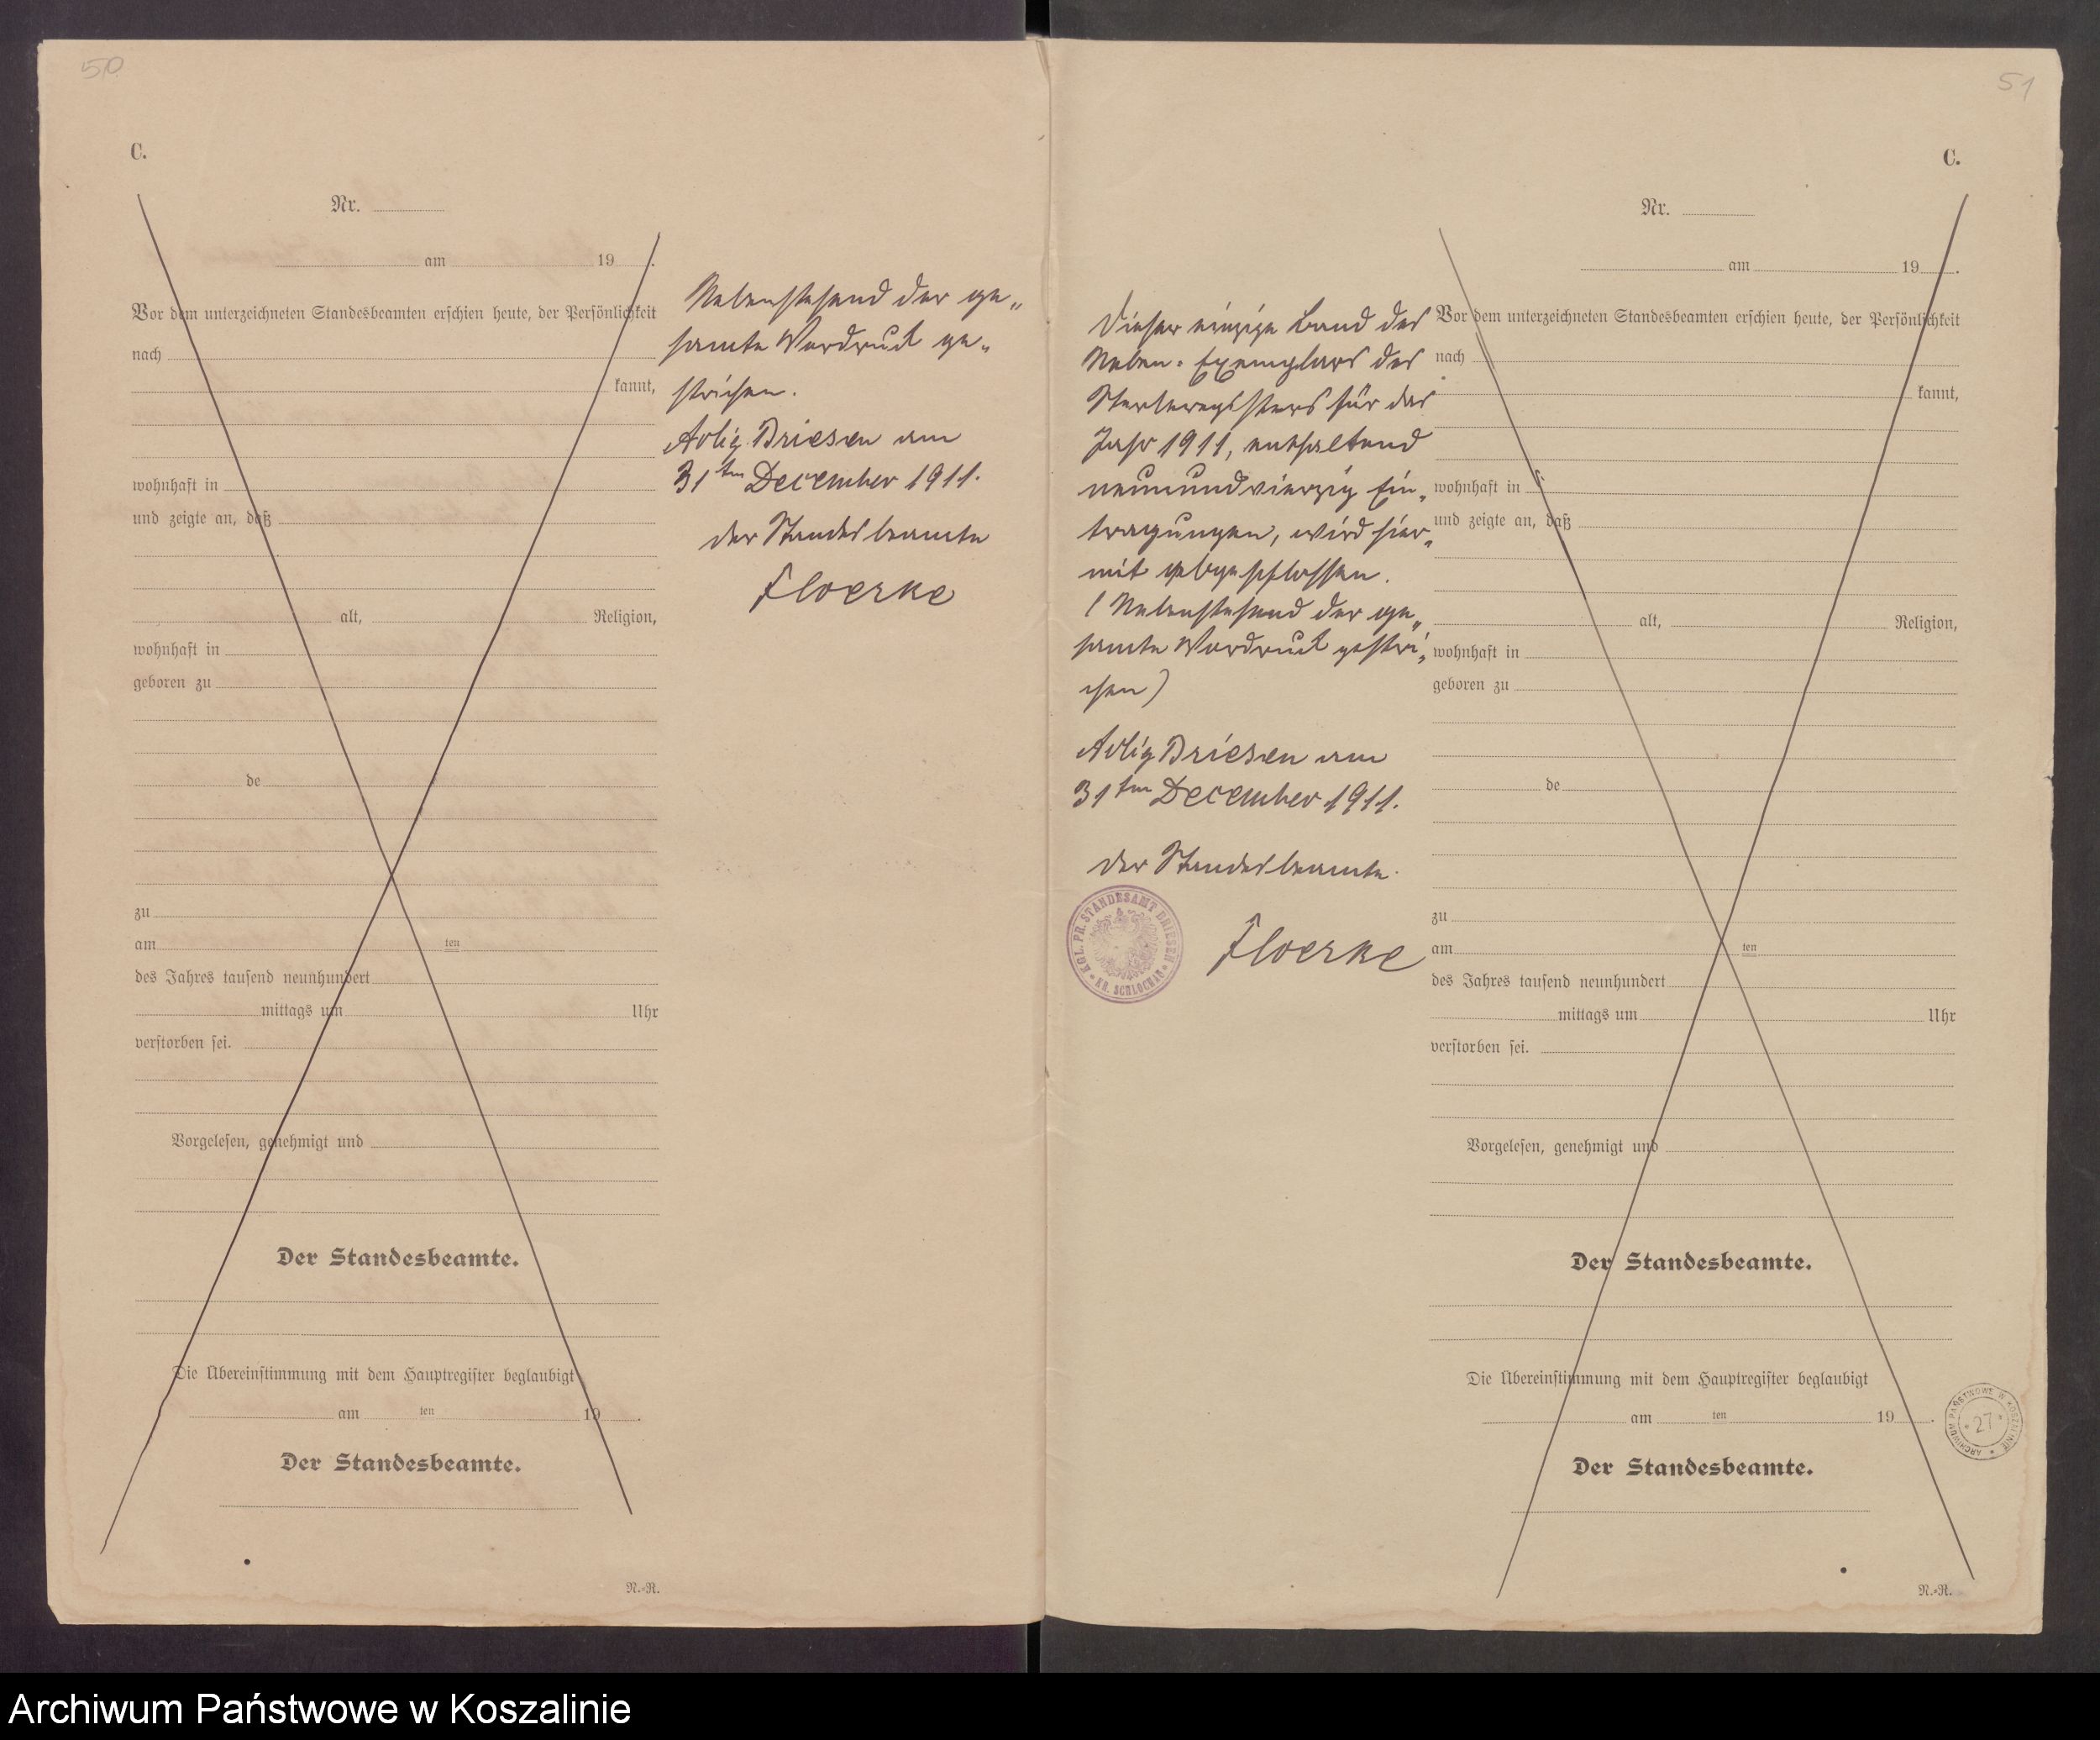 50
C.
Nr.
am 19 .
Vor dem unterzeichneten Standesbeamten erschien heute, der Persönlichkeit
nach
kannt,
wohnhaft in
und zeigte an, daß
alt, Religion,
wohnhaft in
geboren zu
de
zu
am ten
des Jahres tausend neunhundert
mittags um Uhr
verstorben sei.
Vorgelesen, genehmigt und
Der Standesbeamte.
Die Übereinstimmung mit dem Hauptregister beglaubigt
am ten 19 .
Der Standesbeamte.
N.-R.
Nebenstehend der ge„
samte Vordruck ge„
strichen.
Adlig Briesen am
31ten December 1911.
der Standesbeamte
Floerke
51
C.
Dieser einzige Band des
Neben-Exemplars des
Sterberegisters für das
Jahr 1911, enthaltend
neunundvierzig Ein„
tragungen, wird hier„
mit abgeschlossen.
(Nebenstehend der ge„
samte Vordruck gestri„
chen)
Adlig Briesen am
31ten December 1911.
der Standesbeamte.
Floerke
KGL. PR. STANDESAMT BRIESEN
* KR. SCHLOCHAU *
Nr.
am 19 .
Vor dem unterzeichneten Standesbeamten erschien heute, der Persönlichkeit
nach
kannt,
wohnhaft in
und zeigte an, daß
alt, Religion,
wohnhaft in
geboren zu
de
zu
am ten
des Jahres tausend neunhundert
mittags um Uhr
verstorben sei.
Vorgelesen, genehmigt und
Der Standesbeamte.
Die Übereinstimmung mit dem Hauptregister beglaubigt
am ten 19 .
Der Standesbeamte.
ARCHIWUM PAŃSTWOWE W KOSZALINIE *
* 27 *
N.-R.
Archiwum Państwowe w Koszalinie